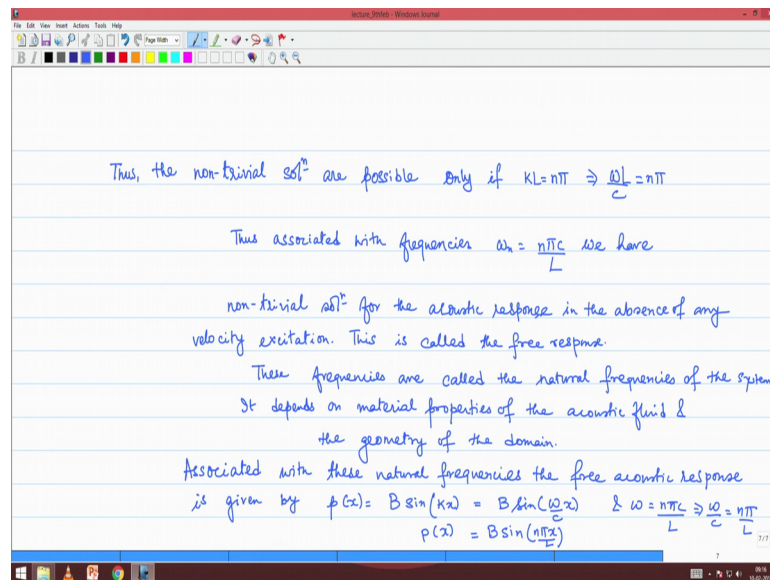 lecture_9thfeb - Windows Journal
File Edit View Insert Actions Tools Help
Page Width
B I
Thus, the non-trivial solⁿ are possible only if KL=nπ ⇒ ωL/c = nπ
Thus associated with frequencies ωₙ = nπc/L we have
non-trivial solⁿ for the acoustic response in the absence of any
velocity excitation. This is called the free response.
These frequencies are called the natural frequencies of the system
It depends on material properties of the acoustic fluid &
the geometry of the domain.
Associated with these natural frequencies the free acoustic response
is given by p(x) = B sin(Kx) = B sin(ω/c x) & ω = nπc/L ⇒ ω/c = nπ/L
p(x) = B sin(nπx/L)
7/7
7
09:16